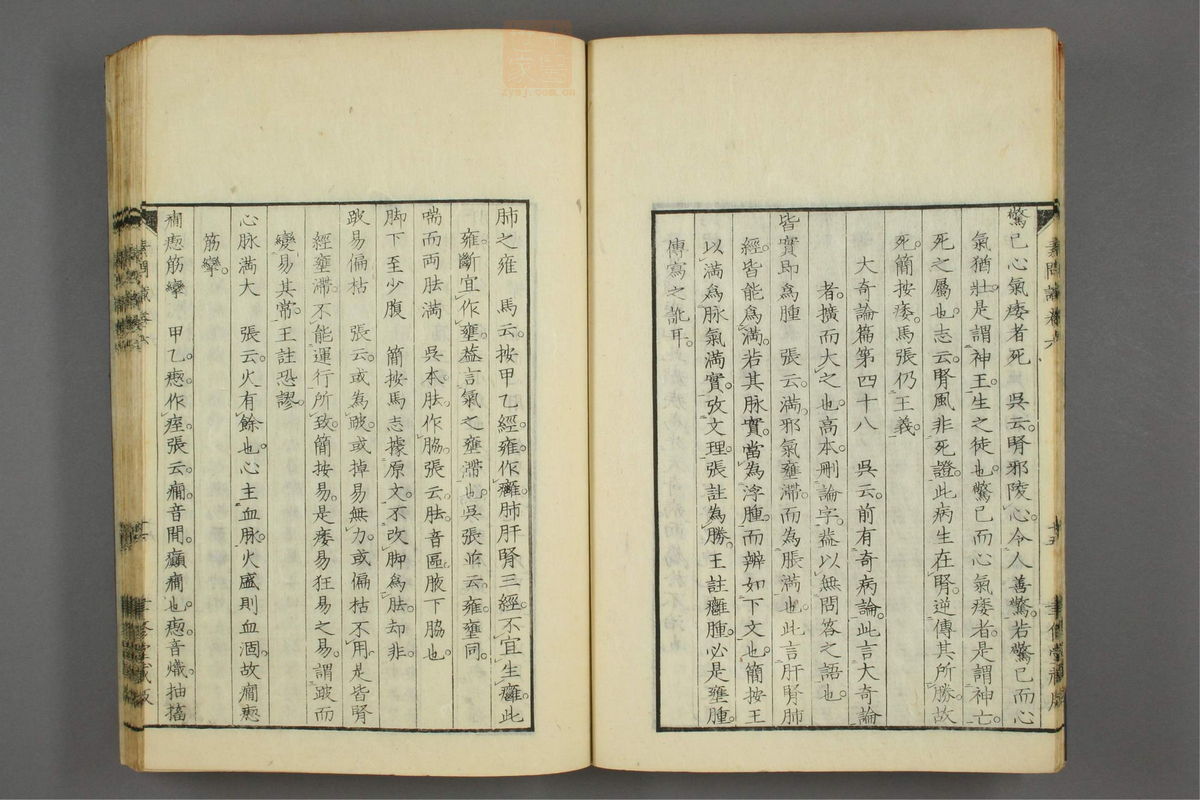 驚已心氣痿者死　吳云腎邪陵心令人善驚若驚已而心
氣猶壯是謂神王生之徒也驚已而心氣痿者是謂神亡
死之屬也志云腎風非死證此病生在腎逆傳其所勝故
死簡按痿馬張仍王義
大奇論篇第四十八　吳云前有奇病論此言大奇論
者擴而大之也高本刪論字葢以無問答之語也
皆實即爲腫　張云滿邪氣壅滯而為脹滿也此言肝腎肺
經皆能為滿若其脉實當為浮腫而辨如下文也簡按王
以滿爲脉氣滿實攷文理張註為勝王註癰腫必是壅腫
傳寫之訛耳
肺之雍　馬云按甲乙經雍作癰肺肝腎三經不宜生癰此
雍斷宜作壅葢言氣之壅滯也吳張並云雍壅同
喘而両胠滿　吳本胠作脇張云胠音區腋下脇也
脚下至少腹　簡按馬志據原文不改脚爲胠却非
跛易偏枯　張云或為跛或掉易無力或偏枯不用是皆腎
經壅滯不能運行所致簡按易是痿易狂易之易謂跛而
變易其常王註恐謬
心脉滿大　張云火有餘也心主血脉火盛則血涸故癇瘛
筋攣
癇瘛筋攣　甲乙瘛作痓張云癇音間癲癇也瘛音熾抽搐
素問識卷六
聿修堂藏版
zysj.com.cn